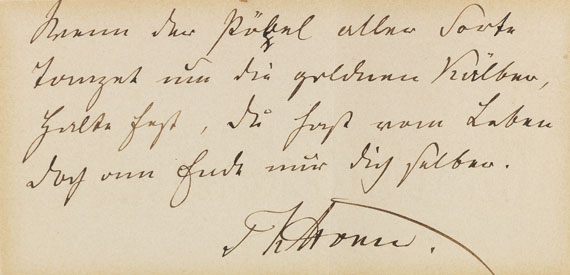 Wenn der Pöbel aller Sorte
Tanzet um die goldnen Kälber,
Halte fest, du hast vom Leben
Doch am Ende nur dich selber.
ThStorm.